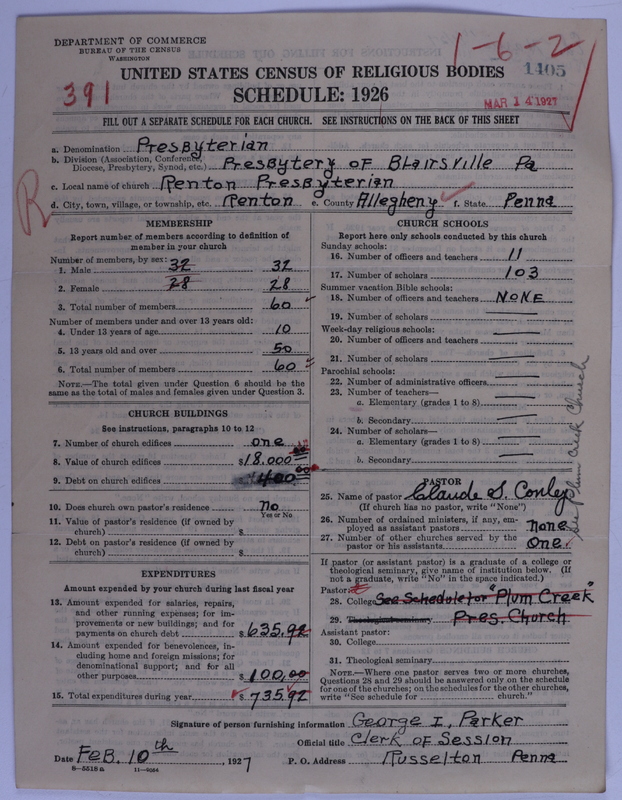 DEPARTMENT OF COMMERCE
BUREAU OF THE CENSUS
WASHINGTON
1-6-2
1405
391
UNITED STATES CENSUS OF RELIGIOUS BODIES
SCHEDULE: 1926
MAR 14 1927
FILL OUT A SEPARATE SCHEDULE FOR EACH CHURCH. SEE INSTRUCTIONS ON THE BACK OF THIS SHEET
R
a. Denomination Presbyterian
b. Division (Association, Conference, Diocese, Presbytery, Synod, etc.) Presbytery of Blairsville Pa
c. Local name of church Renton Presbyterian
d. City, town, village, or township, etc. Renton e. County Allegheny f. State Penna
MEMBERSHIP
Report number of members according to definition of
member in your church
Number of members, by sex:
1. Male 32 32
2. Female 28 28
3. Total number of members 60
Number of members under and over 13 years old:
4. Under 13 years of age 10
5. 13 years old and over 50
6. Total number of members 60
NOTE.—The total given under Question 6 should be the
same as the total of males and females given under Question 3.
CHURCH BUILDINGS
See instructions, paragraphs 10 to 12
7. Number of church edifices one
8. Value of church edifices $18.000
9. Debt on church edifices 400
10. Does church own pastor's residence no
Yes or No
11. Value of pastor's residence (if owned by
church) $
12. Debt on pastor's residence (if owned by
church) $
EXPENDITURES
Amount expended by your church during last fiscal year
13. Amount expended for salaries, repairs,
and other running expenses; for im-
provements or new buildings; and for
payments on church debt $635.92
14. Amount expended for benevolences, in-
cluding home and foreign missions; for
denominational support; and for all
other purposes 100.00
15. Total expenditures during year $735.92
CHURCH SCHOOLS
Report here only schools conducted by this church
Sunday schools:
16. Number of officers and teachers 11
17. Number of scholars 103
Summer vacation Bible schools:
18. Number of officers and teachers NONE
19. Number of scholars
Week-day religious schools:
20. Number of officers and teachers
21. Number of scholars
Parochial schools:
22. Number of administrative officers
23. Number of teachers—
a. Elementary (grades 1 to 8)
b. Secondary
24. Number of scholars—
a. Elementary (grades 1 to 8)
b. Secondary
See Plum Creek Church
PASTOR
25. Name of pastor Claude S. Conley
(If church has no pastor, write "None")
26. Number of ordained ministers, if any, em-
ployed as assistant pastors none
27. Number of other churches served by the
pastor or his assistants One.
If pastor (or assistant pastor) is a graduate of a college or
theological seminary, give name of institution below. (If
not a graduate, write "No" in the space indicated.)
Pastor:
28. College See Schedule for "Plum Creek"
29. Theological seminary Pres. Church.
Assistant pastor:
30. College
31. Theological seminary
NOTE.—Where one pastor serves two or more churches,
Questions 28 and 29 should be answered only on the schedule
for one of the churches; on the schedules for the other churches,
write "See schedule for church."
Signature of person furnishing information George I. Parker
Official title Clerk of Session
Date Feb. 10th, 1927 P. O. Address Russelton Penna
8-5518a 11-9064